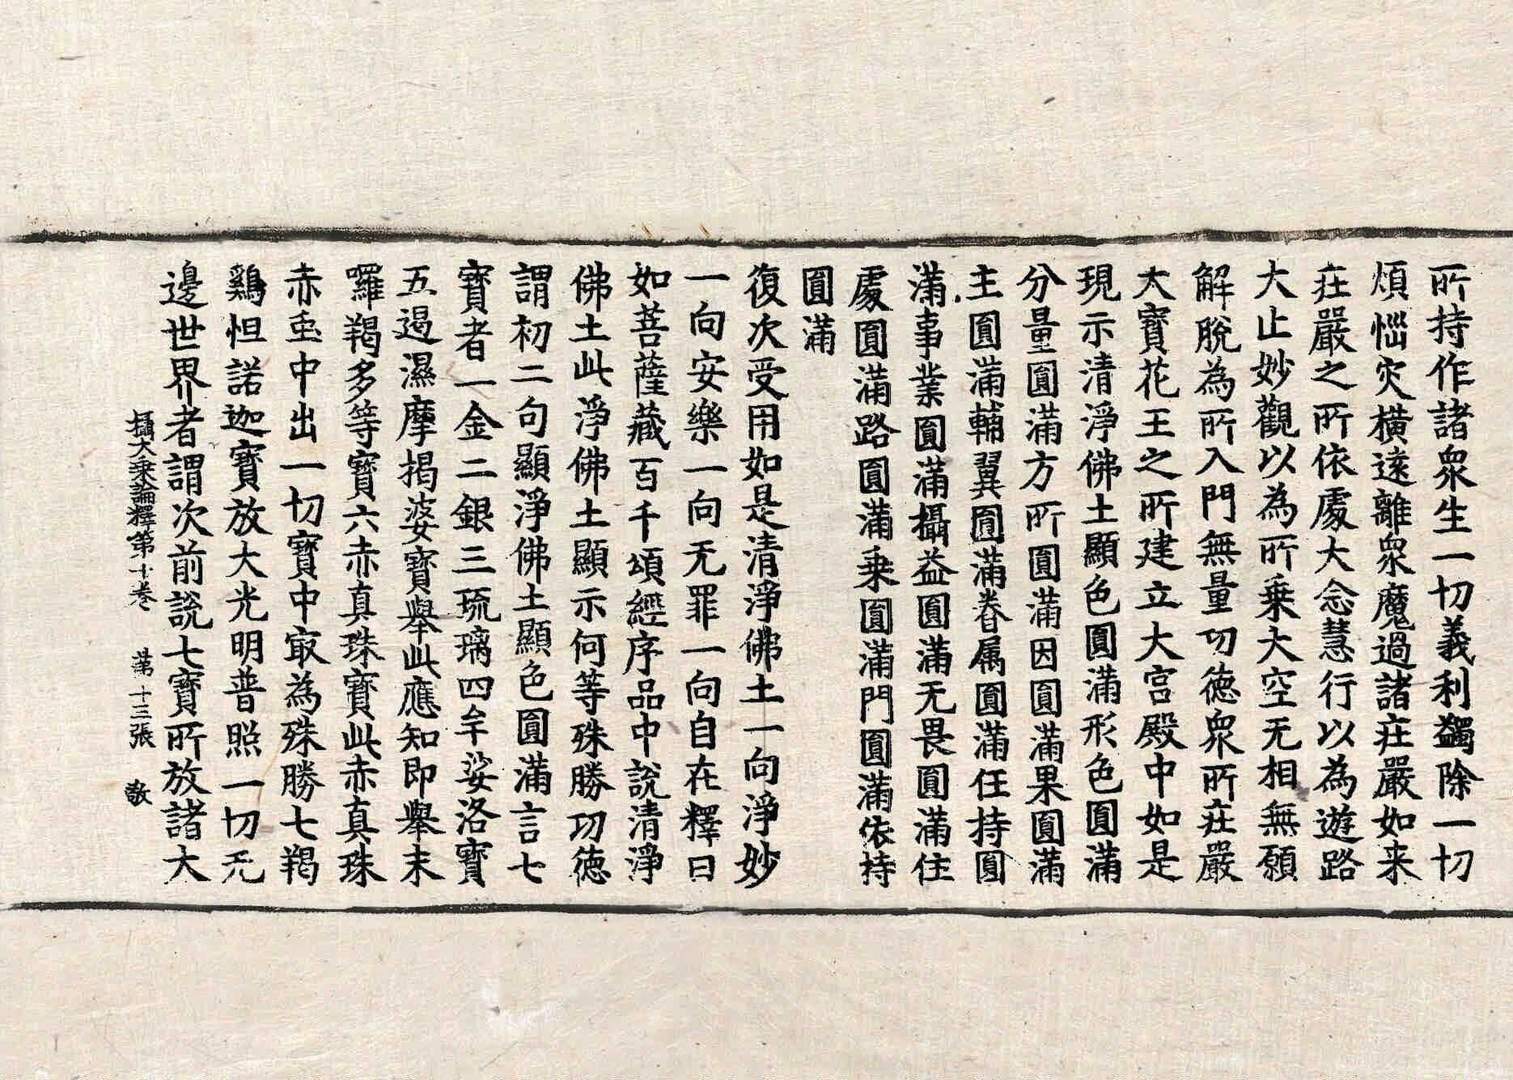 所持作諸衆生一切義利蠲除一切
煩惱灾橫遠離衆魔過諸莊嚴如来
莊嚴之所依處大念慧行以為遊路
大止妙觀以為所乗大空无相無願
解脫為所入門無量功德衆所莊嚴
大寶花王之所建立大宮殿中如是
現示清淨佛土顯色圓滿形色圓滿
分量圓滿方所圓滿因圓滿果圓滿
主圓滿輔翼圓滿眷属圓滿任持圓
滿事業圓滿攝益圓滿无畏圓滿住
處圓滿路圓滿乗圓滿門圓滿依持
圓滿
復次受用如是清淨佛土一向淨妙
一向安樂一向无罪一向自在釋曰
如菩薩藏百千頌經序品中說清淨
佛土此淨佛土顯示何等殊勝功徳
謂初二句顯淨佛土顯色圓滿言七
寶者一金二銀三琉璃四牟娑洛寶
五遏濕摩揭婆寶舉此應知即舉末
囉羯多等寶六赤真珠寶此赤真珠
赤虫中出一切寶中㝡為殊勝七羯
鷄怛諾迦寶放大光明普照一切无
邊世界者謂次前說七寶所放諸大
攝大乗論釋第十卷 第十三張 敬